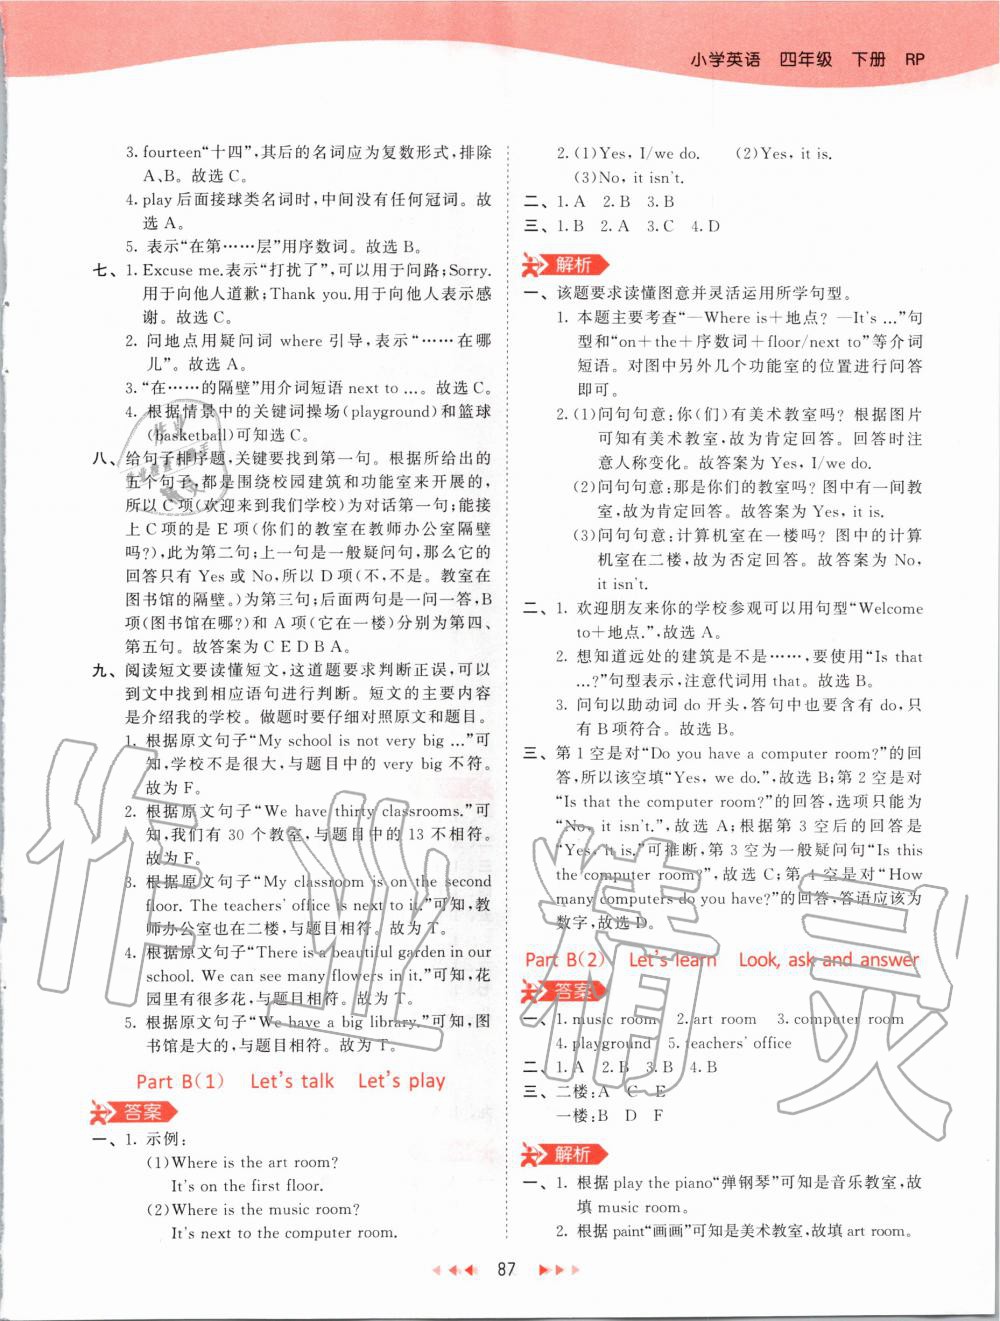 小学英语 四年级 下册 RP
3. fourteen“十四”,其后的名词应为复数形式,排除
A、B。故选 C。
4. play 后面接球类名词时,中间没有任何冠词。故
选 A。
5. 表示“在第……层”用序数词。故选 B。
七、1. Excuse me.表示“打扰了”,可以用于问路;Sorry.
用于向他人道歉;Thank you.用于向他人表示感
谢。故选 A。
2. 问地点用疑问词 where 引导,表示“……在哪
儿”。故选 A。
3.“在……的隔壁”用介词短语 next to …。故选 C。
4. 根据情景中的关键词操场(playground)和篮球
(basketball)可知选 C。
八、给句子排序题,关键要找到第一句。根据所给出的
五个句子,都是围绕校园建筑和功能室来开展的,
所以 C 项(欢迎来到我们学校)为对话第一句;能接
上 C 项的是 E 项(你们的教室在教师办公室隔壁
吗?),此为第二句;上一句是一般疑问句,那么它的
回答只有 Yes 或 No,所以 D 项(不,不是。教室在
图书馆的隔壁。)为第三句;后面两句是一问一答,B
项(图书馆在哪?)和 A 项(它在一楼)分别为第四、
第五句。故答案为 C E D B A。
九、阅读短文要读懂短文,这道题要求判断正误,可以
到文中找到相应语句进行判断。短文的主要内容
是介绍我的学校。做题时要仔细对照原文和题目。
1. 根据原文句子“My school is not very big …”可
知,学校不是很大,与题目中的 very big 不符。
故为 F。
2. 根据原文句子“We have thirty classrooms.”可
知,我们有 30 个教室,与题目中的 13 不相符。
故为 F。
3. 根据原文句子“My classroom is on the second
floor. The teachers' office is next to it.”可知,教
师办公室也在二楼,与题目相符。故为 T。
4. 根据原文句子“There is a beautiful garden in our
school. We can see many flowers in it.”可知,花
园里有很多花,与题目相符。故为 T。
5. 根据原文句子“We have a big library.”可知,图
书馆是大的,与题目相符。故为 T。
Part B(1) Let's talk Let's play
答案
一、1. 示例:
(1)Where is the art room?
It's on the first floor.
(2)Where is the music room?
It's next to the computer room.
2. (1)Yes, I/we do. (2)Yes, it is.
(3)No, it isn't.
二、1. A 2. B 3. B
三、1. B 2. A 3. C 4. D
解析
一、该题要求读懂图意并灵活运用所学句型。
1. 本题主要考查“—Where is+地点? —It's …”句
型和“on+the+序数词+floor/next to”等介词
短语。对图中另外几个功能室的位置进行问答
即可。
2. (1)问句句意:你(们)有美术教室吗? 根据图片
可知有美术教室,故为肯定回答。回答时注
意人称变化。故答案为 Yes, I/we do.
(2)问句句意:那是你们的教室吗? 图中有一间教
室,故为肯定回答。故答案为 Yes, it is.
(3)问句句意:计算机室在一楼吗? 图中的计算
机室在二楼,故为否定回答。故答案为 No,
it isn't.
二、1. 欢迎朋友来你的学校参观可以用句型“Welcome
to+地点.”,故选 A。
2. 想知道远处的建筑是不是……,要使用“Is that
…?”句型表示,注意代词用 that。故选 B。
3. 问句以助动词 do 开头,答句中也要含有 do,只
有 B 项符合。故选 B。
三、第 1 空是对“Do you have a computer room?”的回
答,所以该空填“Yes, we do.”,故选 B;第 2 空是对
“Is that the computer room?”的回答,选项只能为
“No, it isn't.”,故选 A;根据第 3 空后的回答是
“Yes, it is.”可推断,第 3 空为一般疑问句“Is this
the computer room?”,故选 C;第 4 空是对“How
many computers do you have?”的回答,答语应该为
数字,故选 D。
Part B(2) Let's learn Look, ask and answer
答案
一、1. music room 2. art room 3. computer room
4. playground 5. teachers' office
二、1. A 2. B 3. B 4. B
三、二楼:A C E
一楼:B D F
解析
一、1. 根据 play the piano“弹钢琴”可知是音乐教室,故
填 music room。
2. 根据 paint“画画”可知是美术教室,故填 art room。
87
作业精灵